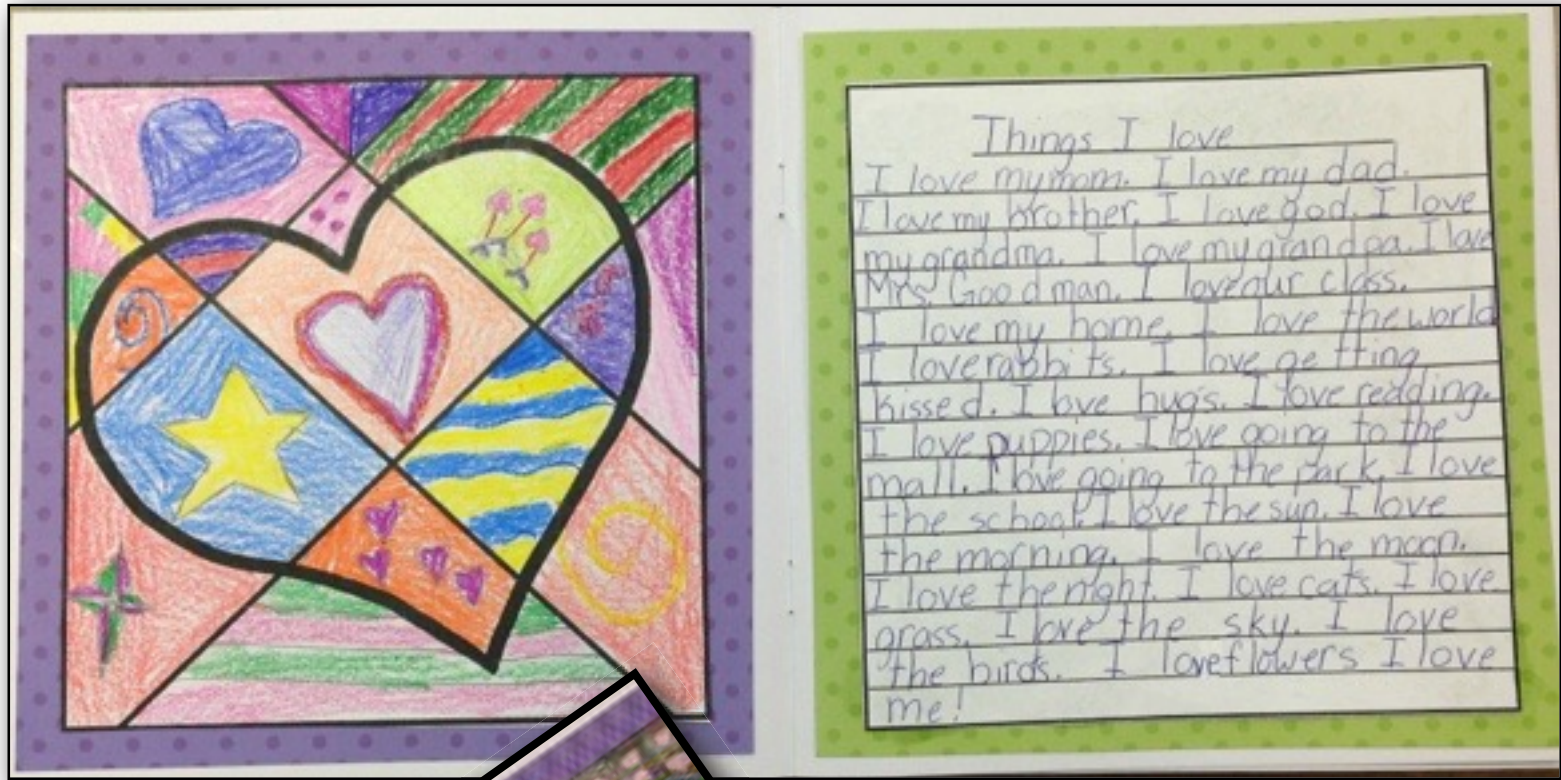 Things I love
I love my mom. I love my dad.
I love my brother. I love god. I love
my grandma. I love my grandpa. I love
Mrs. Goodman. I love our class.
I love my home. I love the world
I love rabbits. I love getting
kissed. I love hugs. I love reading.
I love puppies. I love going to the
mall. I love going to the park. I love
the school. I love the sun. I love
the morning. I love the moon.
I love the night. I love cats. I love
grass. I love the sky. I love
the birds. I love flowers I love
me!